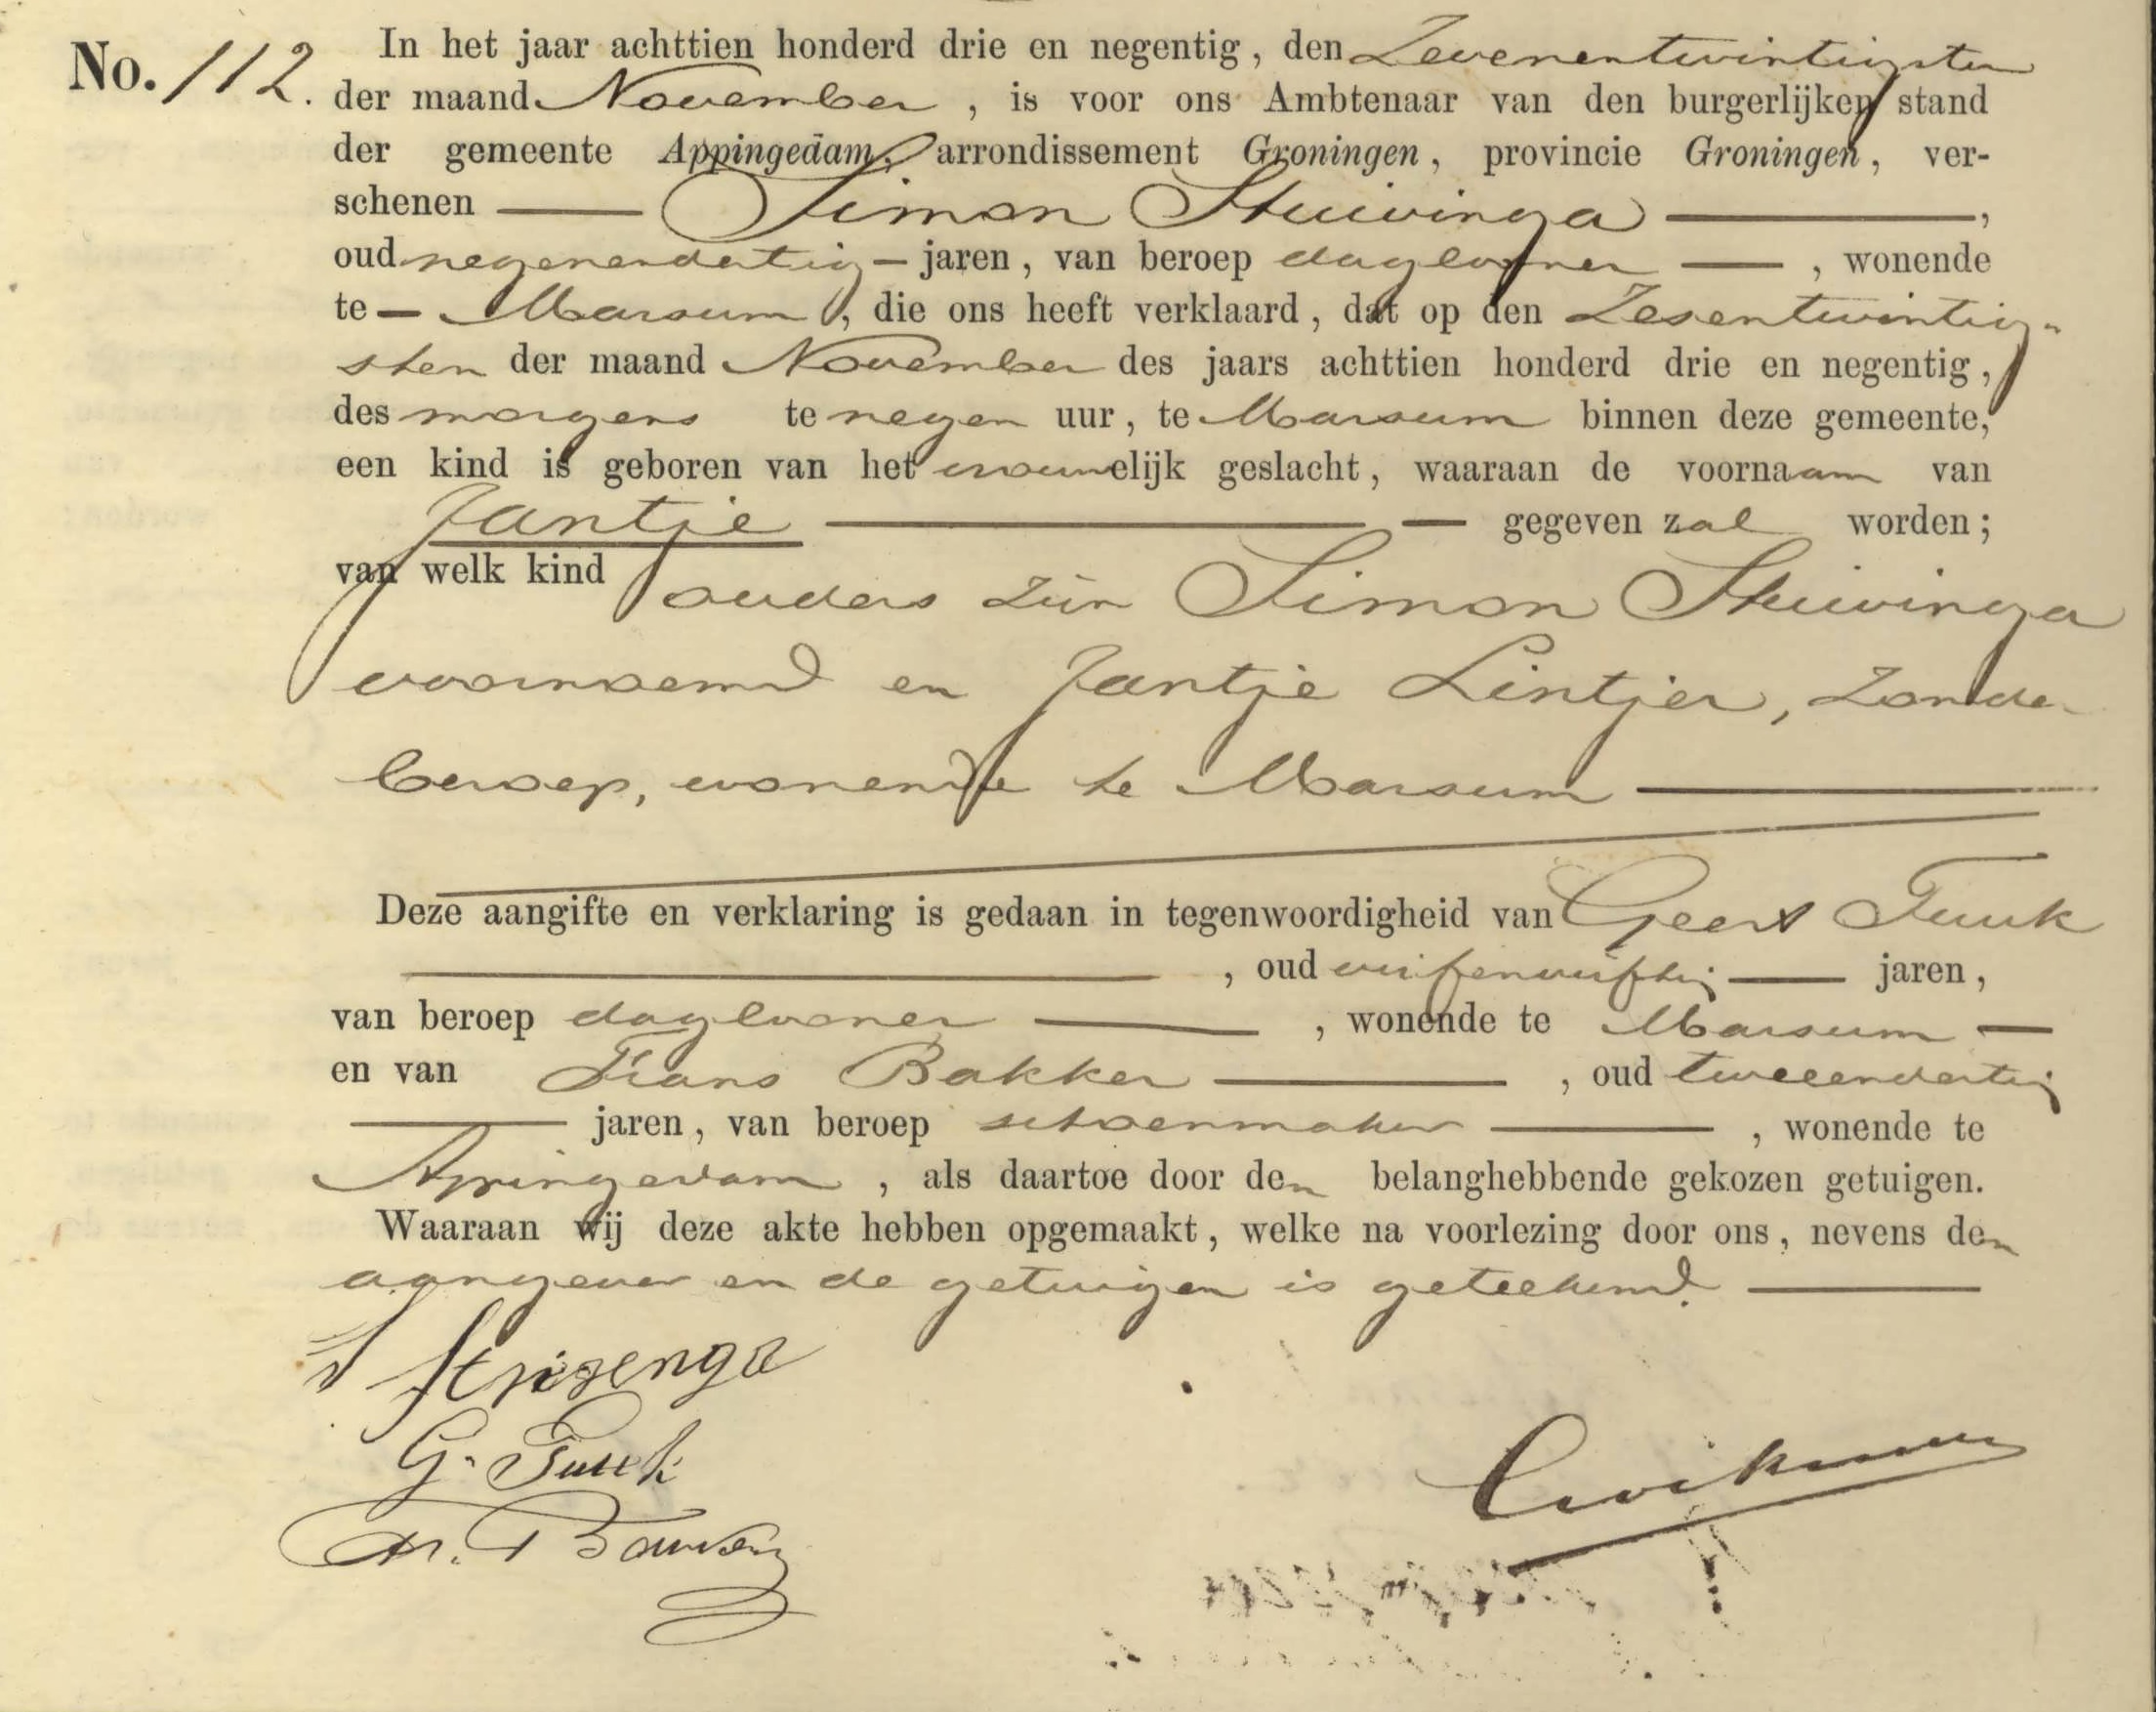 No. 112. In het jaar achttien honderd drie en negentig, den Zevenentwintigsten
der maand November, is voor ons Ambtenaar van den burgerlijken stand
der gemeente Appingedam, arrondissement Groningen, provincie Groningen, ver-
schenen — Simon Stuivinga —,
oud negenendertig — jaren, van beroep daglooner —, wonende
te — Marsum, die ons heeft verklaard, dat op den Zesentwintig-
sten der maand November des jaars achttien honderd drie en negentig,
des morgens te negen uur, te Marsum binnen deze gemeente,
een kind is geboren van het vrouwelijk geslacht, waaraan de voornaam van
Jantje — — gegeven zal worden;
van welk kind ouders zijn Simon Stuivinga
voornoemd en Jantje Lintjer, zonder
beroep, wonende te Marsum —
Deze aangifte en verklaring is gedaan in tegenwoordigheid van Geert Tuuk
—, oud vijfenvijftig — jaren,
van beroep daglooner —, wonende te Marsum —
en van Frans Bakker —, oud tweeendertig
— jaren, van beroep schoenmaker —, wonende te
Appingedam, als daartoe door den belanghebbende gekozen getuigen.
Waaraan wij deze akte hebben opgemaakt, welke na voorlezing door ons, nevens den
aangever en de getuigen is geteekend. —
G. Tuuk